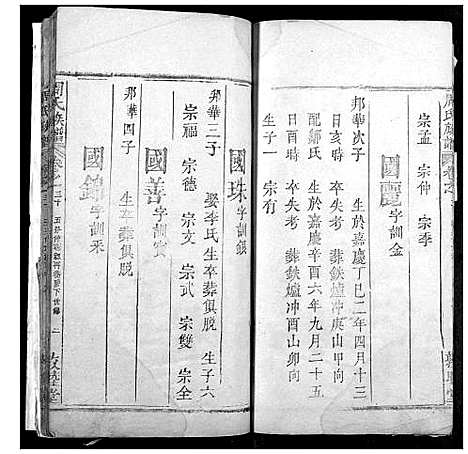 周氏族譜
宗孟 宗仲 宗季
國麗字訓金
邦華次子 生於嘉慶丁巳二年四月十三
日亥時 卒失考 葬鉄爐冲庚山甲向
配鄒氏 生於嘉慶辛酉六年九月二十五
日酉時 卒失考 葬鉄爐冲酉山卯向
生子一 宗有
國珠字訓銀
邦華三子 娶李氏生卒葬俱脱 生子六
宗福 宗德 宗文 宗武 宗雙 宗全
國善字訓宝
邦華四子 生卒葬俱脱
國錦字訓釆
周氏族譜